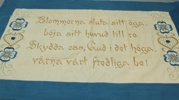 Blommorna sluta sitt öga,
böja sitt huvud till ro.
Skydda oss Gud i det höga,
värna vårt fredliga bo!